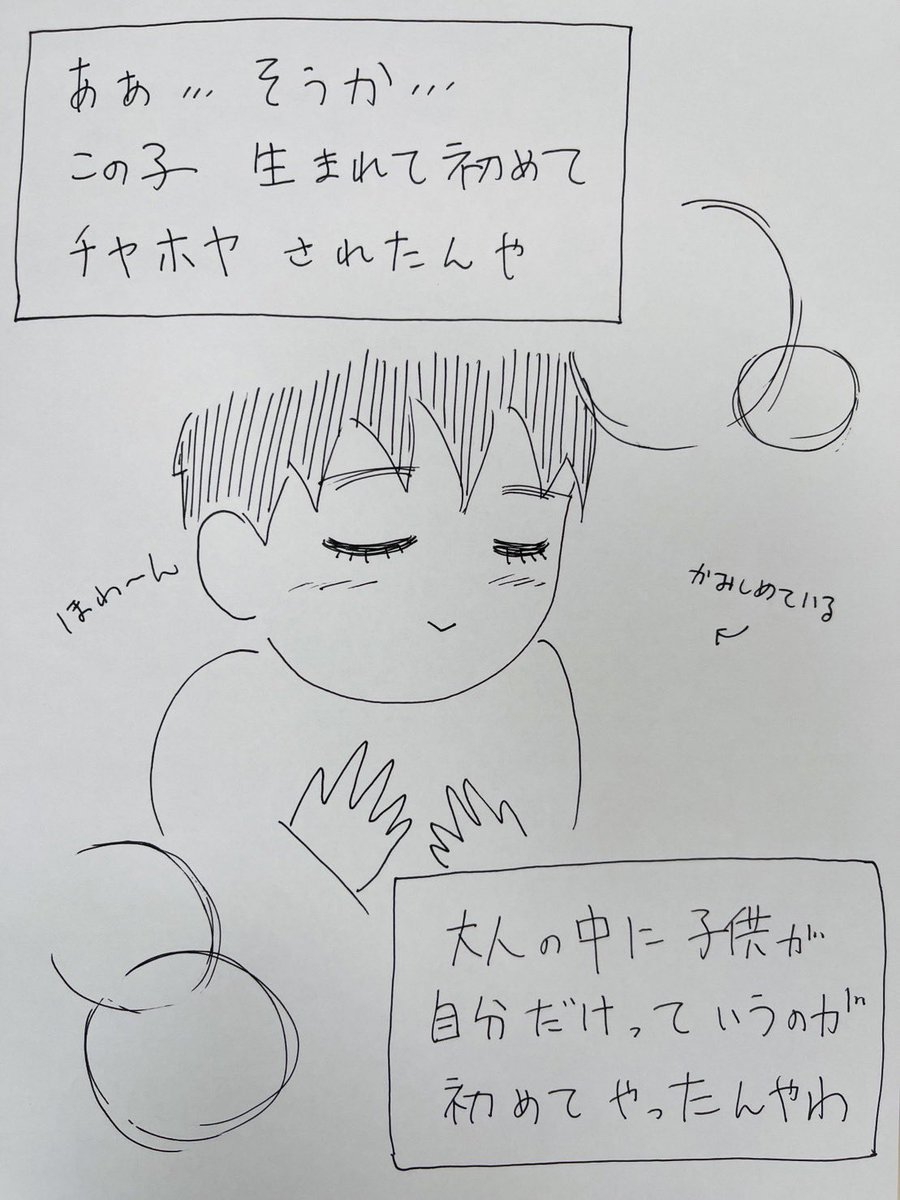 ああ… そうか…
この子 生まれて初めて
チヤホヤ されたんや
ほわ〜ん
かみしめている
大人の中に 子供が
自分だけっていうのが
初めて やったんやわ